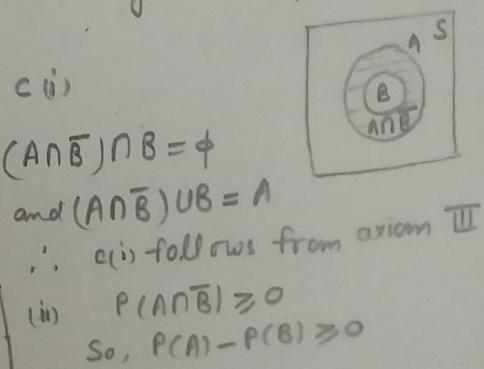 S
A
B
A∩B̅
c(i)
(A∩B̅)∩B = ϕ
and (A∩B̅)∪B = A
∴ c(i) follows from axiom III
(ii) P(A∩B̅) ≥ 0
So, P(A) – P(B) ≥ 0